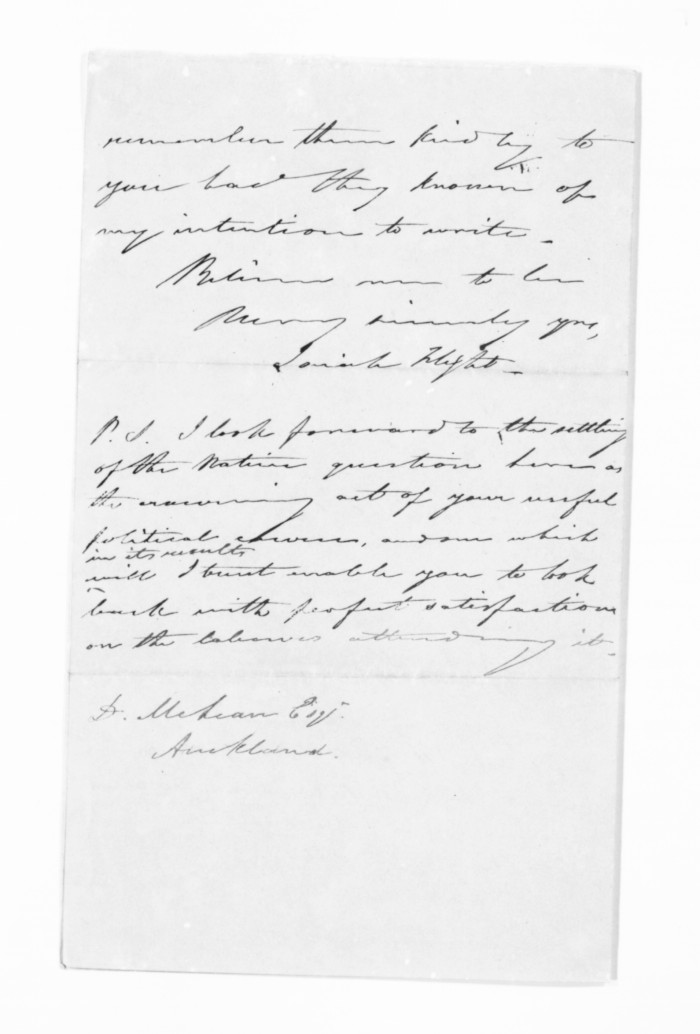 remember them kindly to
you had they known of
my intention to write.
Believe me to be
Very sincerely yrs,
Josiah Flight.
P.S. I look forward to the settling
of the Native question here as
the crowning act of your useful
political career, and one which
in its results
will I trust enable you to look
back with perfect satisfaction
on the labours attending it.
D. McLean Esqr.
Auckland.